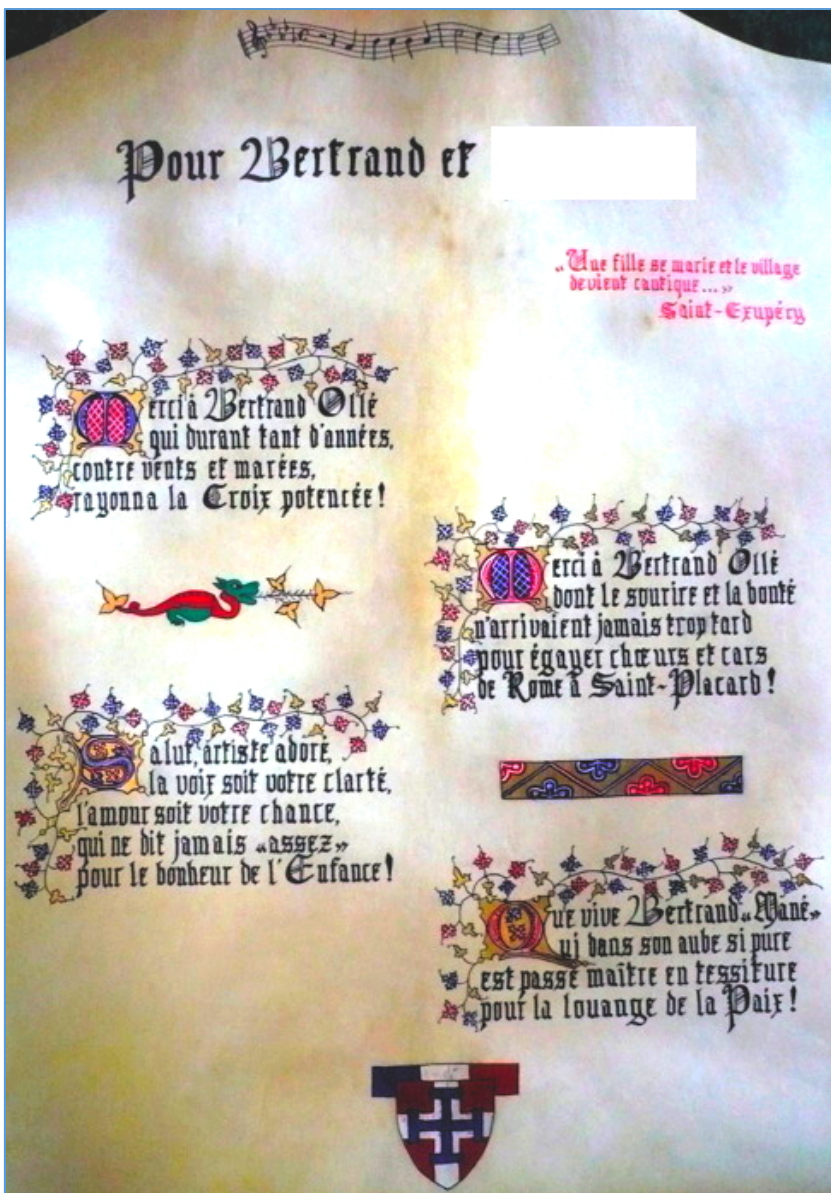 Pour Bertrand et
„Une fille se marie et le village
devient cantique...”
Saint-Exupéry
Merci à Bertrand Ollé
qui durant tant d'années,
contre vents et marées,
rayonna la Croix potencée !
Merci à Bertrand Ollé
dont le sourire et la bonté
n'arrivaient jamais trop tard
pour égayer chœurs et cars
de Rome à Saint-Placard !
Salut, artiste adoré,
la voix soit votre clarté,
l'amour soit votre chance,
qui ne dit jamais «assez»
pour le bonheur de l'Enfance !
Que vive Bertrand „Mané”
qui dans son aube si pure
est passé maître en tessiture
pour la louange de la Paix !